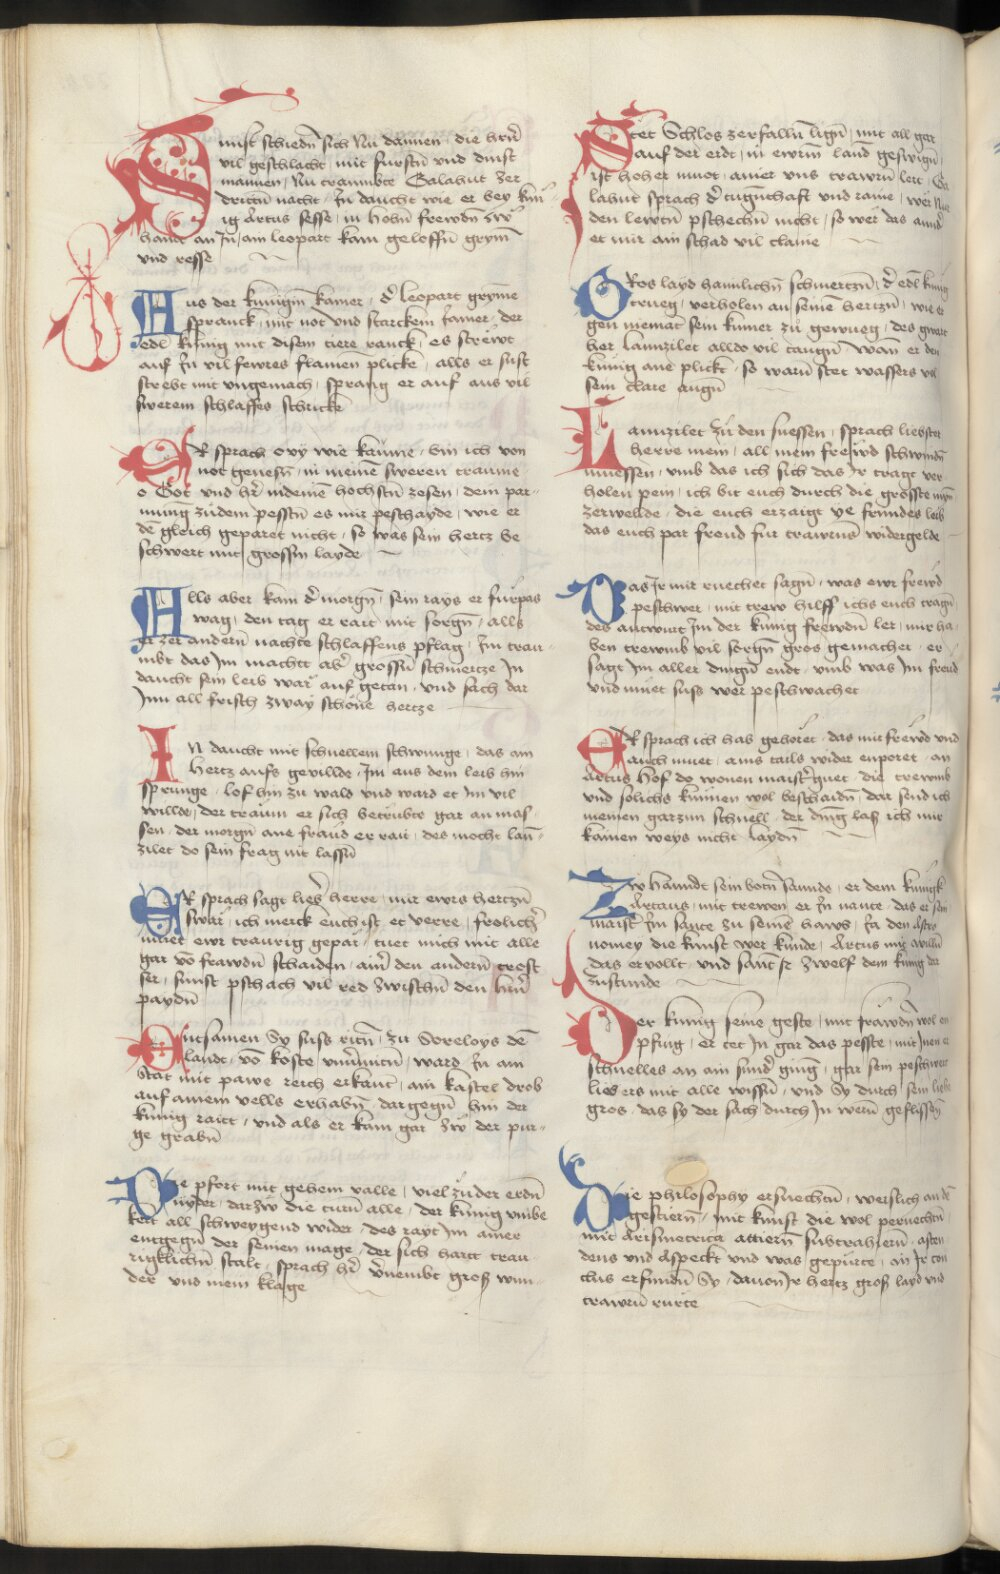 Sunst schiedn̄ sich Nu dannen / die hrn̄
vil geschlacht / mit furstn̄ vnd dinst
mannen / Nu traumbte Galahut zer
dritten nacht / In daucht wie er bey kün
ig Artus sesse / in hohn̄ frewdn̄ zw
hannt an In / am leopart kam geloffn̄ grym̄
vnd resse
Aus der künigin kamer / d' leopart grymē
spranck / mit not vnd starckem Jamer / der
edl künig mit disem tiere ranck / es strewt
auf In vil fewres flamen plickē / alls er sust
strebt mit vngemach / sprang er auf aus vil
swerem schlaffes schrickē
ER sprach owy wie kaume / bin ich von
not genesn̄ / in meinē sweren traume
o Got vnd hr̄ in deinē hochstn̄ zesen / dem par
mung zu dem pesstn̄ es mir peschayde / wie er
dē gleich geparet nicht / so was sein hertz be
schwert mit grossm layde
Alls aber kam d' morgn̄ / sein rays er furpas
wag / den tag er rait mit sorgn̄ / alls
er zer andern nachte schlaffens pflag / Im trau
mbt das Im machtt ab' grossn̄ schmertze In
daucht sein leib war auf getan / vnd sach dar
Inn all frisch zway schöne hertze
IN daucht mit schnellem schwunge / das ain
hertz aufs gevillde / Im aus dem leib hin
sprunge / lof hin zu wald vnd ward et Im vil
willde / der traum er sich betrübte gar an mas
sen / der morgn̄ ane fraud er rait / des mocht lan
zilet do sein frag nit lassn̄
ER sprach sagt lieb' herre / mir ewrs hertzn̄
swar / ich merck euch ist et verre / frolichs
muet ewr traurig gepar / tuet mich mit alle
gar vō frawdn̄ schaiden / ain' den andern trost
ser / sunst pschach vil red zwischn̄ den hrn̄
paydn̄
Aintsamen Sy suss ritn̄ / zu Soreloys dē
lande / vō koste vnu'mitn̄ / ward In am
stat mit pawe reich erkant / am kastel drob
auf ainem vells erhabn̄ / dar gegn̄ hin der
künig raitt / vnd als er kam gar zw der pur
ge grabn̄
Die pfort mit gehem valle / viel zu der erdn̄
nyder / dar zw die turn̄ alle / der künig vmbe
kert all schweygend wider / des rayt Im ainer
entgegn̄ der seinen mage / der sich hart trau
rigklichn̄ stalt / sprach hr̄ v'nembt gross wun
der vnd mein klage
Stet Schlos zerfalln̄ lign̄ / mit all gar
auf der erde / in ewrm̄ lannd geswign̄
ist hoher muet / aller vns trawrn̄ lert / Ga
lahut sprach d' tugnthaft vnd raine / wer nur
den lewtn̄ pschechn̄ nicht / so wer das annd'
et mir ain schad vil claine
GRos layd hainlichn̄ schmertzn̄ / d' edl künig
trueg / verholen an seinē hertzn̄ / wie er
gen niemāt sein kumer zu gewueg / des gwart
her Lannzilet alldo vil taugn̄ / Wann er den
künig ane plickt / so warn̄ stet wassers vol
sein clare augn̄
Lannzilet zu den suessen / sprach liebster
herre mein / all mein frewd schwindn̄
muessen / vmb das ich sich das Ir tragt ver
holen pein / ich bit euch durch die grosste myn̄
zer wellde / die euch erzaigt ye frundes leib
das euch pat freud fur trawrns widergelde
Das Ir mir ruechet sagn̄ / was ewr frewd
peschwer / mit trew hilff ichs euch tragn̄
des antwurt Im der künig frewdn̄ ler / mir ha
ben trewmb vil sorgn̄ gros gemachet / er
sagt Im aller dingn̄ endt / vmb was Im freud
vnd muet suss wer peschwachet
ER sprach ich hab gehoret / das mir frewd vnd
auch muet / ains tails wider enporet / an
Artus hof do wonen maist' guet / die trewmb
vnd solichs künnen wol beschaidn̄ / dar send ich
meinen garzun schnell / der ding lass ich mir
kainen weys nicht laydn̄
Zw hanndt sein botn̄ sannde / er dem künigk
Artaus / mit trewen er In nante / das er sein
maist' Im sannte zu seinē haws / In den Astro
nomey die kunst wer künde / Artus mit willn̄
das ervollt / vnd sant Ir zwelf dem künig dar
zustunde
Der künig seine geste / mit frawdn̄ wol en
pfing / er tet In gar das peste / mit Inen er
schnelles an ain sund' ging / gar sein peschwert
lies ers mit alle wissn̄ / vnd Sy durch sein liebe
gros / das sy der sach durch In wern̄ geflissn̄
Die philosophy ersuechtn̄ / weislich an dē
gestiern̄ / mit kunst die wol peruechtn̄
mit Arismetrica attiern̄ subtrahiern̄ / asten
dens vnd Aspeckt vnd was gepurte / an Ir con
clus erfundn̄ Sy / dauon Ir hertz gross layd vnd
trawrn̄ rurte